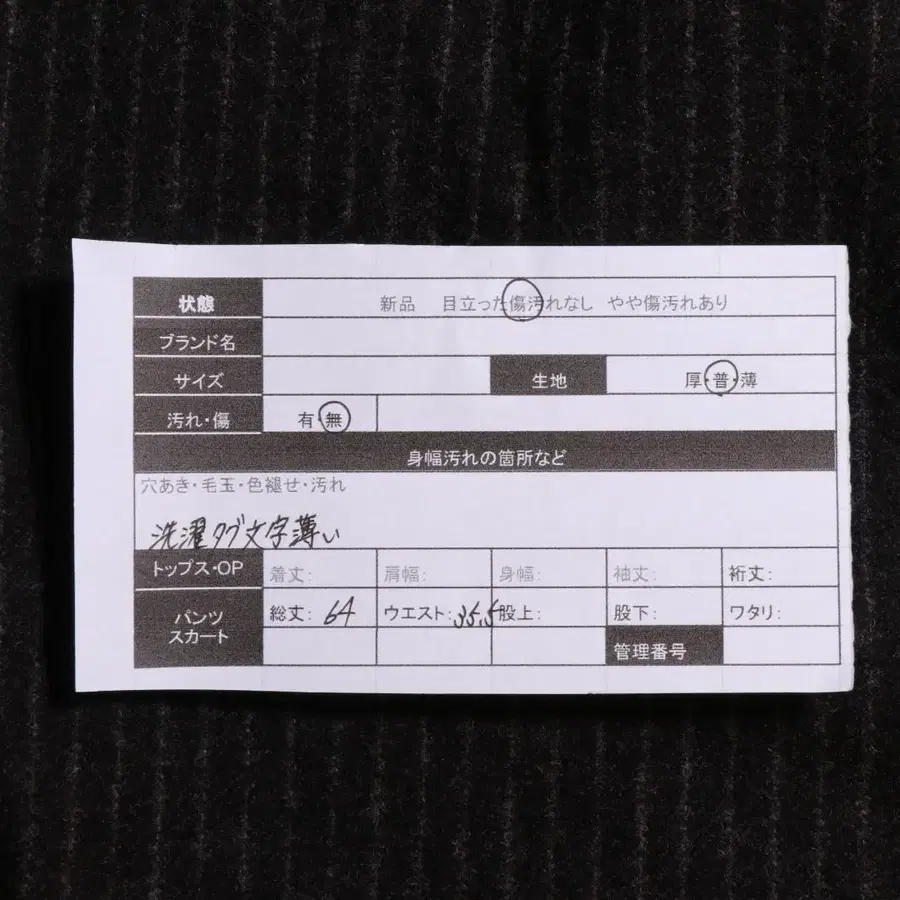 状態 新品 目立った傷汚れなし やや傷汚れあり
ブランド名
サイズ 生地 厚・普・薄
汚れ・傷 有・無
身幅汚れの箇所など
穴あき・毛玉・色褪せ・汚れ
洗濯タグ文字薄い
トップス・OP 着丈: 肩幅: 身幅: 袖丈: 裄丈:
パンツ 総丈: 64 ウエスト: 35.5 股上: 股下: ワタリ:
スカート 管理番号